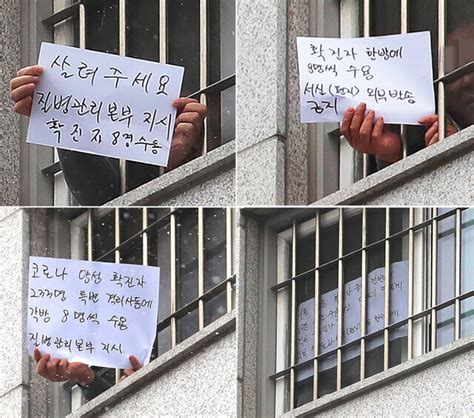 살려주세요
질병관리본부 지시
확진자 8명수용
확진자 한방에
8명씩 수용
서신(편지) 외부발송
금지
코로나 양성 확진자
233명 특별 격리사동에
각방 8명씩 수용
질병관리본부 지시.